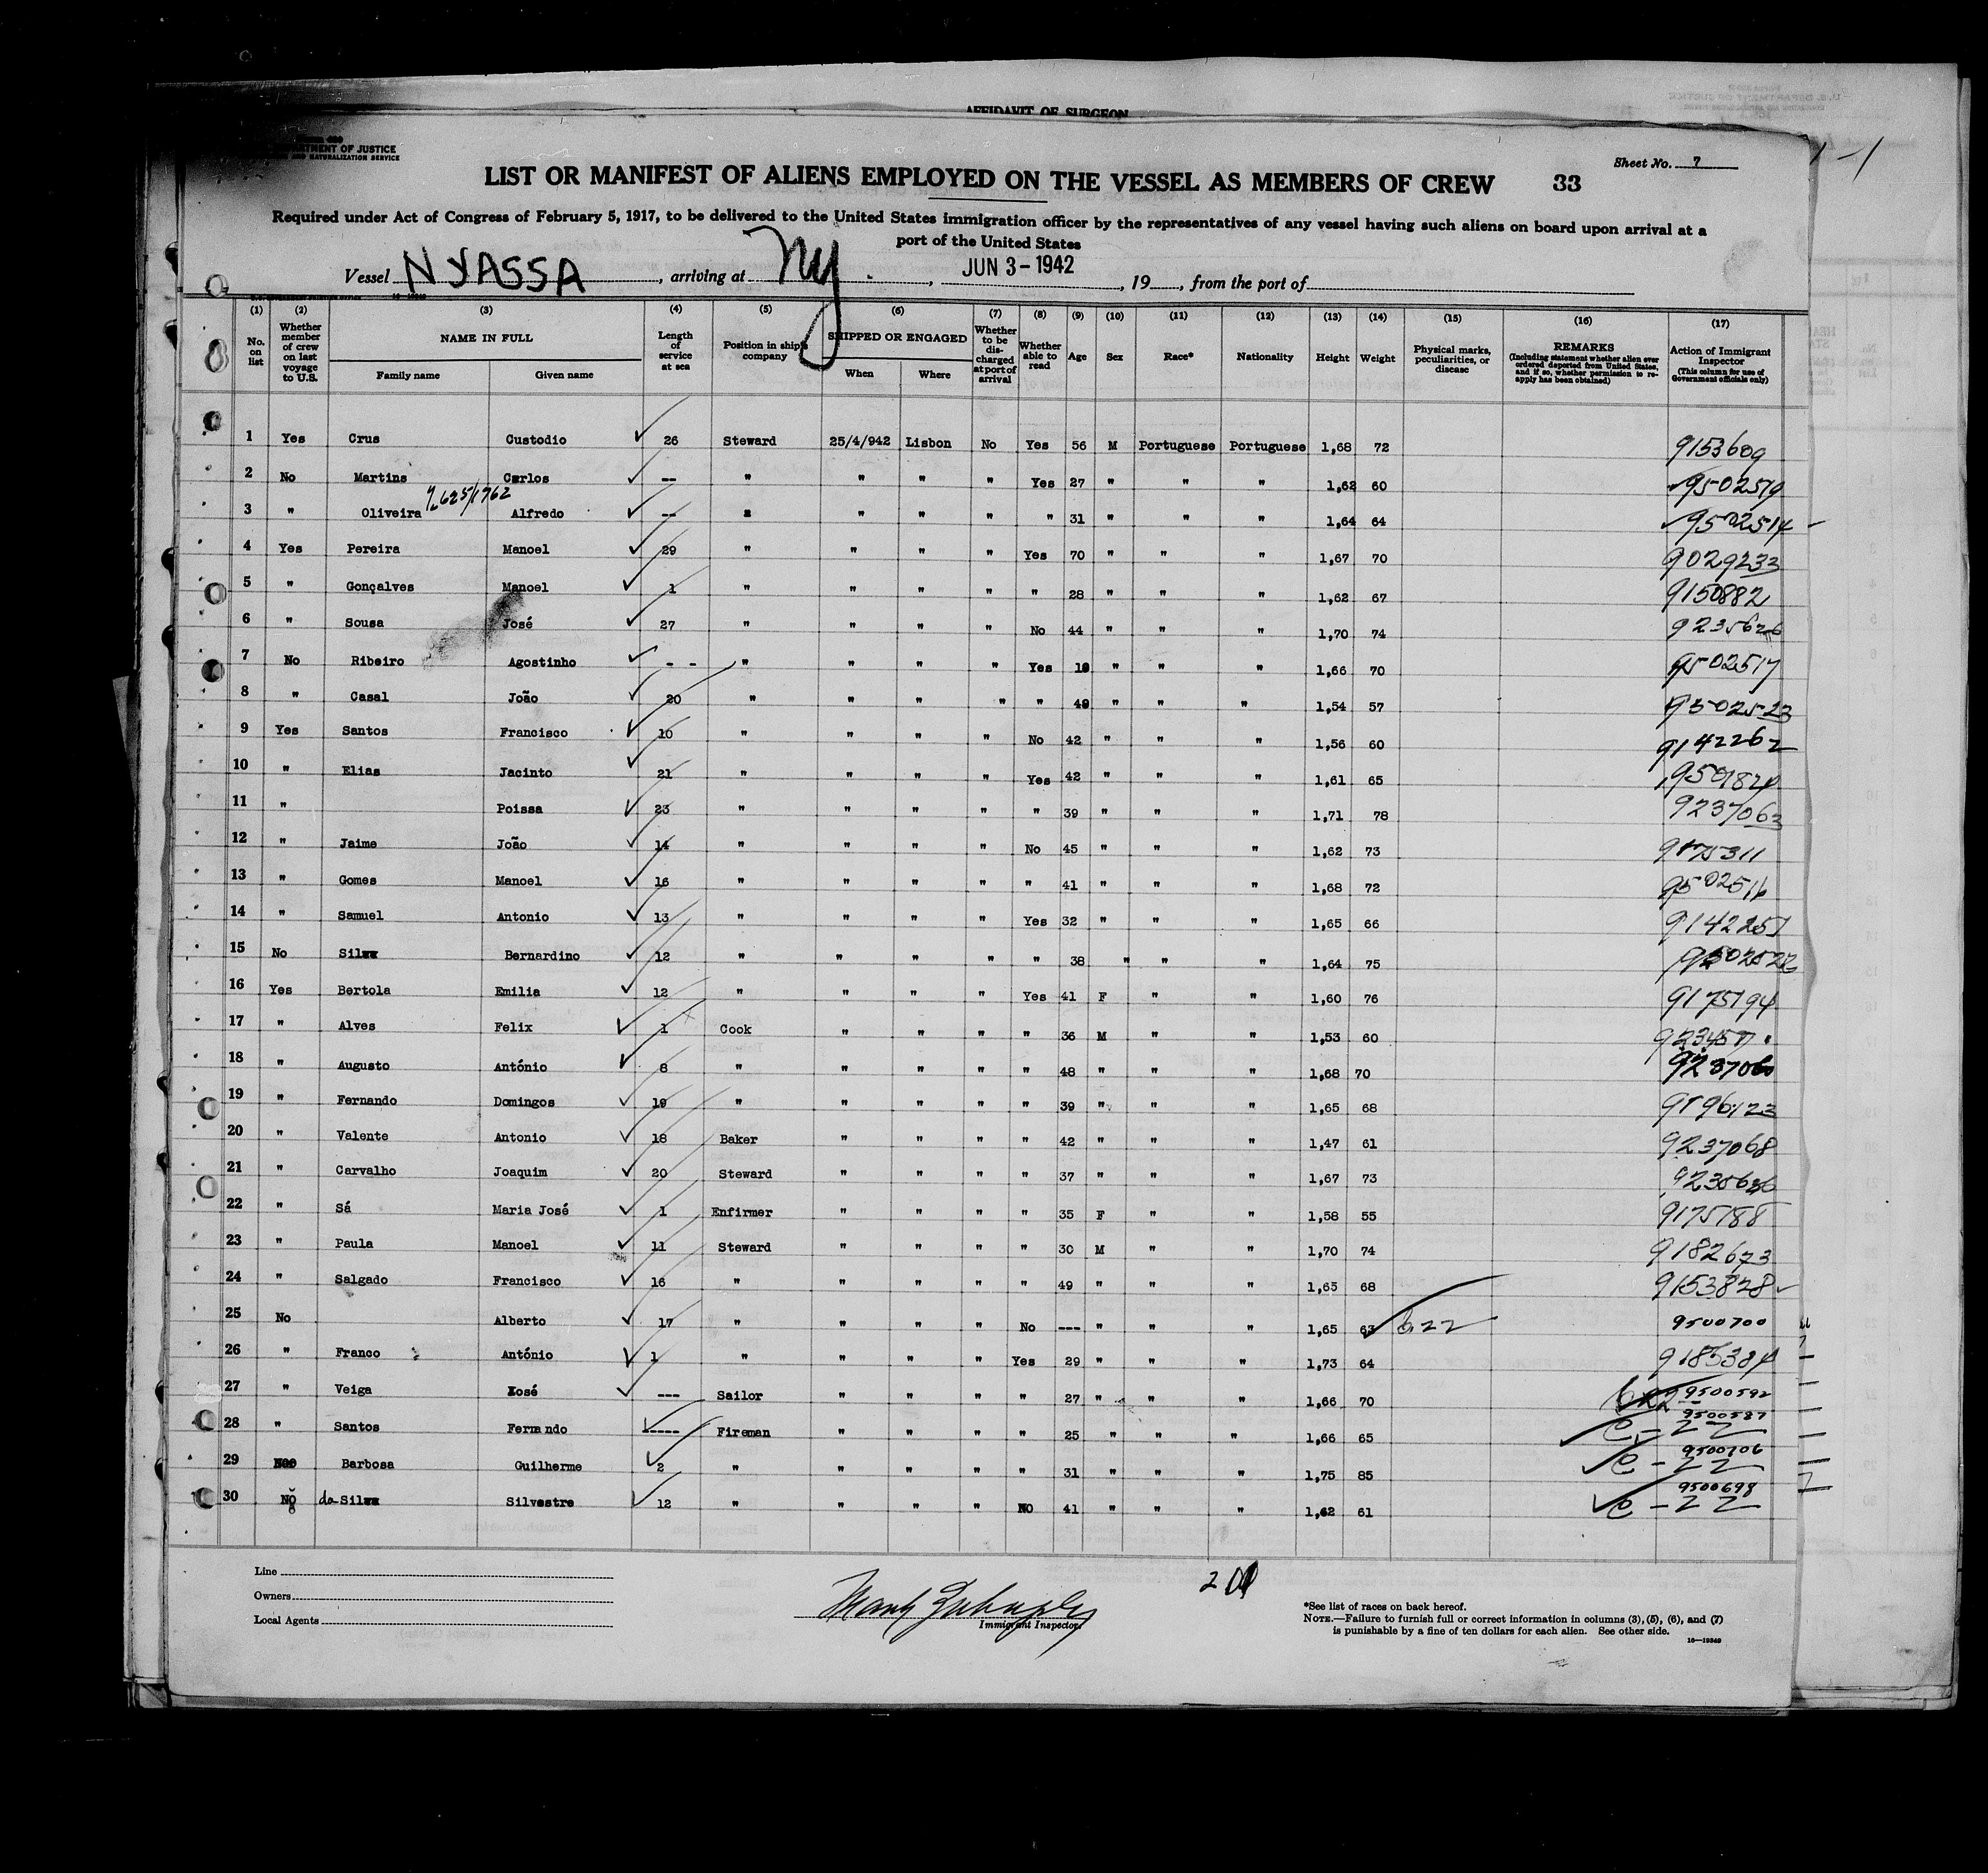 AFFIDAVIT OF SURGEON
DEPARTMENT OF JUSTICE
AND NATURALIZATION SERVICE
Sheet No. 7
LIST OR MANIFEST OF ALIENS EMPLOYED ON THE VESSEL AS MEMBERS OF CREW 33
Required under Act of Congress of February 5, 1917, to be delivered to the United States immigration officer by the representatives of any vessel having such aliens on board upon arrival at a
port of the United States
Vessel NYASSA, arriving at NY, JUN 3 - 1942, 19, from the port of
(1) (2) (3) (4) (5) (6) (7) (8) (9) (10) (11) (12) (13) (14) (15) (16) (17)
No. on list Whether member of crew on last voyage to U.S. NAME IN FULL Family name Given name Length of service at sea Position in ship's company SHIPPED OR ENGAGED When Where Whether to be discharged at port of arrival Whether able to read Age Sex Race* Nationality Height Weight Physical marks, peculiarities, or disease REMARKS (Including statement whether alien ever ordered deported from United States, and if so, whether permission to reapply has been obtained) Action of Immigrant Inspector (This column for use of Government officials only)
1 Yes Crus Custodio 26 Steward 25/4/942 Lisbon No Yes 56 M Portuguese Portuguese 1,68 72 9153609
2 No Martins Carlos -- " " " " Yes 27 " " " 1,62 60 9502519
3 " Oliveira Alfredo -- " " " " " 31 " " " 1,64 64 9502514
4 Yes Pereira Manoel 29 " " " " Yes 70 " " " 1,67 70 9029233
5 " Gonçalves Manoel 1 " " " " " 28 " " " 1,62 67 9150882
6 " Sousa José 27 " " " " No 44 " " " 1,70 74 9235626
7 No Ribeiro Agostinho - - " " " " Yes 19 " " " 1,66 70 9502517
8 " Casal João 20 " " " " " 49 " " " 1,54 57 9502523
9 Yes Santos Francisco 10 " " " " No 42 " " " 1,56 60 9142262
10 " Elias Jacinto 21 " " " " Yes 42 " " " 1,61 65 9501824
11 " Poissa 23 " " " " " 39 " " " 1,71 78 9237063
12 " Jaime João 14 " " " " No 45 " " " 1,62 73 9175311
13 " Gomes Manoel 16 " " " " " 41 " " " 1,68 72 9502516
14 " Samuel Antonio 13 " " " " Yes 32 " " " 1,65 66 9142251
15 No Bernardino 12 " " " " " 38 " " " 1,64 75
16 Yes Bertola Emilia 12 " " " " Yes 41 F " " 1,60 76 9175194
17 " Alves Felix 1 Cook " " " " 36 M " " 1,53 60
18 " Augusto António 8 " " " " " 48 " " " 1,68 70 9237060
19 " Fernando Domingos 19 " " " " " 39 " " " 1,65 68 9196123
20 " Valente Antonio 18 Baker " " " " 42 " " " 1,47 61 9237068
21 " Carvalho Joaquim 20 Steward " " " " 37 " " " 1,67 73
22 " Sá Maria José 1 Enfirmer " " " " 35 F " " 1,58 55 9175188
23 " Paula Manoel 11 Steward " " " " 30 M " " 1,70 74 9182673
24 " Salgado Francisco 16 " " " " " 49 " " " 1,65 68 9153828
25 No Alberto 17 " " " " No --- " " " 1,65 63 9500700
26 " Franco António 1 " " " " Yes 29 " " " 1,73 64 9185384
27 " Veiga José --- Sailor " " " " 27 " " " 1,66 70 9500592
28 " Santos Fernando ---- Fireman " " " " 25 " " " 1,66 65 C-22 9500587
29 Barbosa Guilherme 2 " " " " " 31 " " " 1,75 85 C-22 9500706
30 No da Silvestre 12 " " " " No 41 " " " 1,62 61 C-22 9500698
Line
Owners
Local Agents
Immigrant Inspector.
*See list of races on back hereof.
NOTE.—Failure to furnish full or correct information in columns (3), (5), (6), and (7)
is punishable by a fine of ten dollars for each alien. See other side.
16—19349